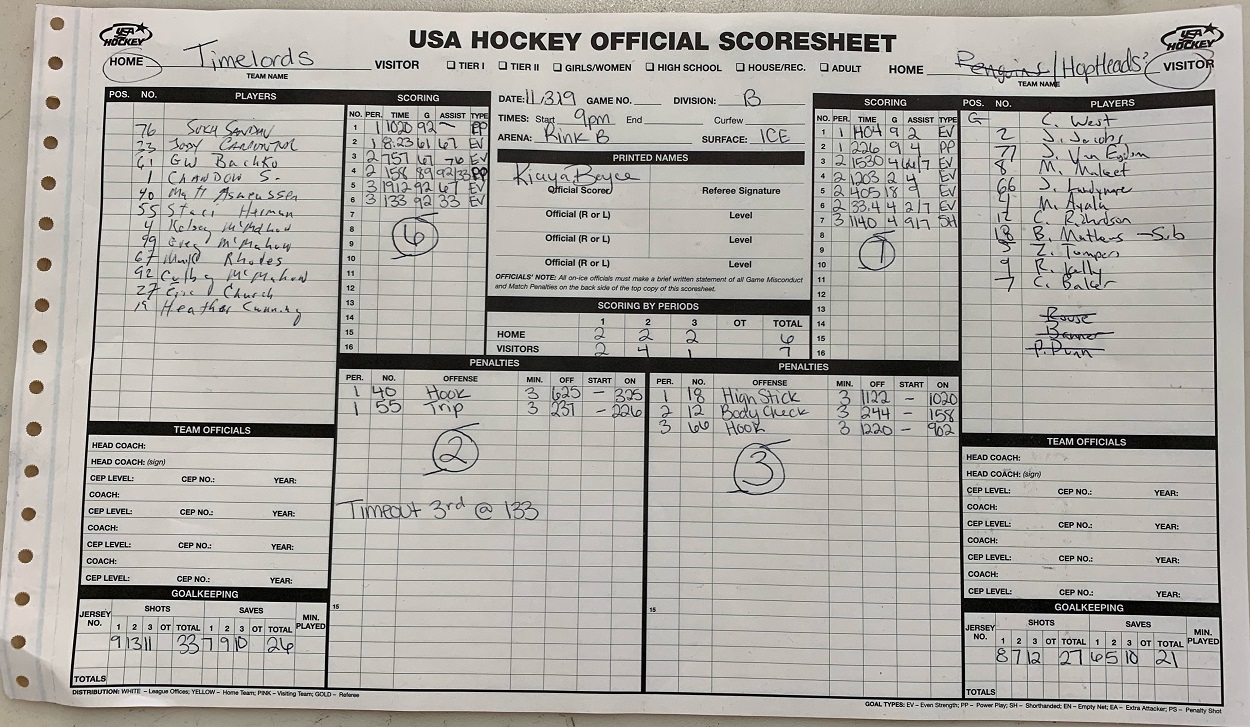 USA HOCKEY
USA HOCKEY OFFICIAL SCORESHEET
USA HOCKEY
HOME Timelords VISITOR
TEAM NAME
☐ TIER I ☐ TIER II ☐ GIRLS/WOMEN ☐ HIGH SCHOOL ☐ HOUSE/REC. ☐ ADULT
HOME Penguins/HopHeads VISITOR
TEAM NAME
POS. NO. PLAYERS
76 Sukh Sandhu
33 Jody
61 GW Bachko
1 Chandow S.
40 Matt Asmussen
55 Staci Herman
4 Kelsey McMahow
99 Greg McMahow
67 Rhodes
92 Colby McMahow
27 Eric Church
19 Heather
SCORING
NO. PER. TIME G ASSIST TYPE
1 1 1020 92 - PP
2 1 8:23 61 67 EV
3 2 757 67 76 EV
4 2 158 89 92/33 PP
5 3 1912 92 67 EV
6 3 133 92 33 EV
7
8
9
10
11
12
13
14
15
16
6
DATE: 11/3/19 GAME NO. DIVISION: B
TIMES: Start 9pm End Curfew
ARENA: Rink B SURFACE: ICE
PRINTED NAMES
Kiaya Bayce
Official Scorer Referee Signature
Official (R or L) Level
Official (R or L) Level
Official (R or L) Level
OFFICIALS' NOTE: All on-ice officials must make a brief written statement of all Game Misconduct
and Match Penalties on the back side of the top copy of this scoresheet.
SCORING BY PERIODS
1 2 3 OT TOTAL
HOME 2 2 2 6
VISITORS 2 4 1 7
SCORING
NO. PER. TIME G ASSIST TYPE
1 1 1404 9 2 EV
2 1 226 9 4 PP
3 2 1530 4 66/7 EV
4 2 1203 2 4 EV
5 2 405 18 9 EV
6 2 33.4 4 2/7 EV
7 3 1140 4 9/7 SH
8
9
10
11
12
13
14
15
16
7
POS. NO. PLAYERS
G C. West
2 J. Jacobs
77 J. Van Egdom
8 M. Malcet
66 J.
4 M. Ayala
12 C. Richardson
18 B. Mathers - Sub
5 Z. Tompers
9 R. Kelly
7 C. Baker
Rouse
Banner
P. Dunn
PENALTIES
PER. NO. OFFENSE MIN. OFF START ON
1 40 Hook 3 625 - 325
1 55 Trip 3 237 - 226
2
Timeout 3rd @ 133
15
PENALTIES
PER. NO. OFFENSE MIN. OFF START ON
1 18 High Stick 3 1122 - 1020
2 12 Body Check 3 244 - 158
3 66 Hook 3 1220 - 902
3
15
TEAM OFFICIALS
HEAD COACH:
HEAD COACH: (sign)
CEP LEVEL: CEP NO.: YEAR:
COACH:
CEP LEVEL: CEP NO.: YEAR:
COACH:
CEP LEVEL: CEP NO.: YEAR:
COACH:
CEP LEVEL: CEP NO.: YEAR:
GOALKEEPING
JERSEY NO. SHOTS SAVES MIN. PLAYED
1 2 3 OT TOTAL 1 2 3 OT TOTAL
9 13 11 33 7 9 10 26
TOTALS
TEAM OFFICIALS
HEAD COACH:
HEAD COACH: (sign)
CEP LEVEL: CEP NO.: YEAR:
COACH:
CEP LEVEL: CEP NO.: YEAR:
COACH:
CEP LEVEL: CEP NO.: YEAR:
COACH:
CEP LEVEL: CEP NO.: YEAR:
GOALKEEPING
JERSEY NO. SHOTS SAVES MIN. PLAYED
1 2 3 OT TOTAL 1 2 3 OT TOTAL
8 7 12 27 6 5 10 21
TOTALS
DISTRIBUTION: WHITE – League Offices; YELLOW – Home Team; PINK – Visiting Team; GOLD – Referee
GOAL TYPES: EV – Even Strength; PP – Power Play; SH – Shorthanded; EN – Empty Net; EA – Extra Attacker; PS – Penalty Shot